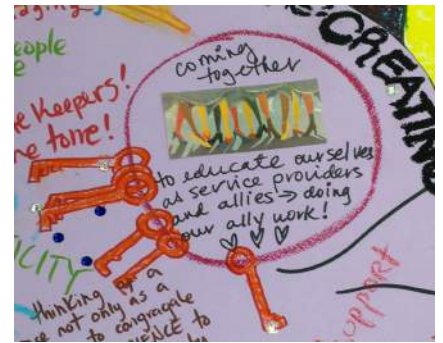 eople
e
e Keepers!
e tone!
coming
together
to educate ourselves
as service providers
and allies → doing
our ally work!
CREATING
ICITY
thinking of a
ce not only as a
to congragate
IENCE to
support